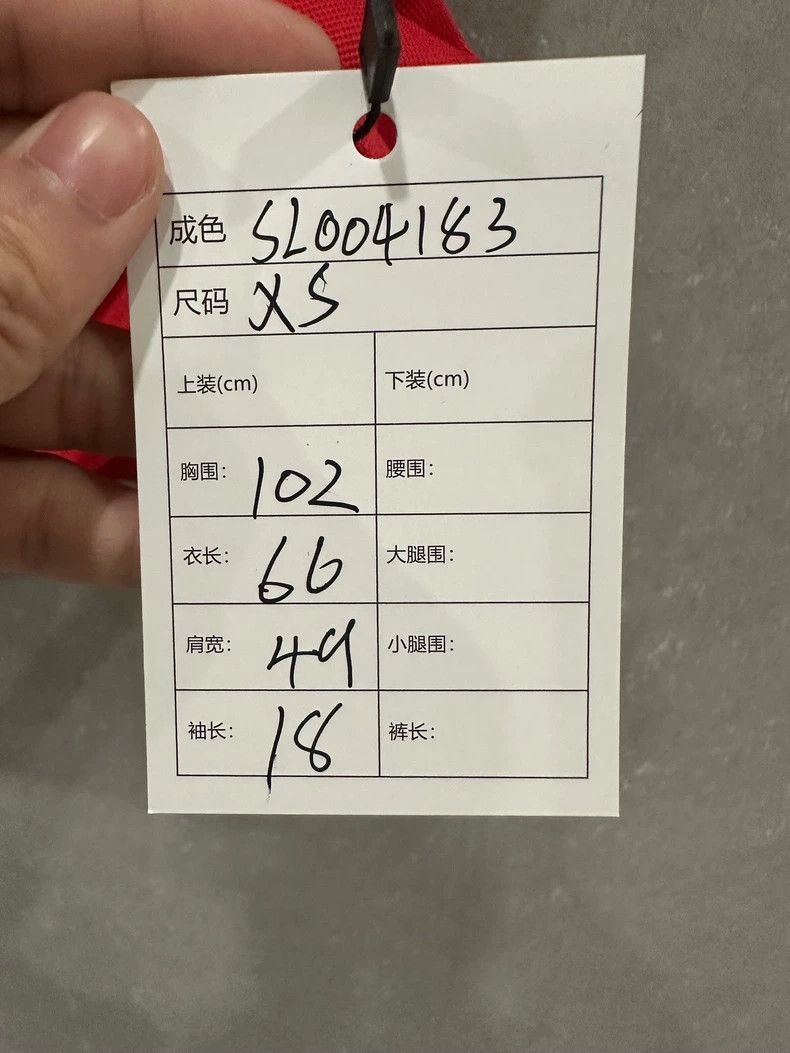 成色 SL004183
尺码 XS
上装(cm) 下装(cm)
胸围: 102 腰围:
衣长: 66 大腿围:
肩宽: 49 小腿围:
袖长: 18 裤长: